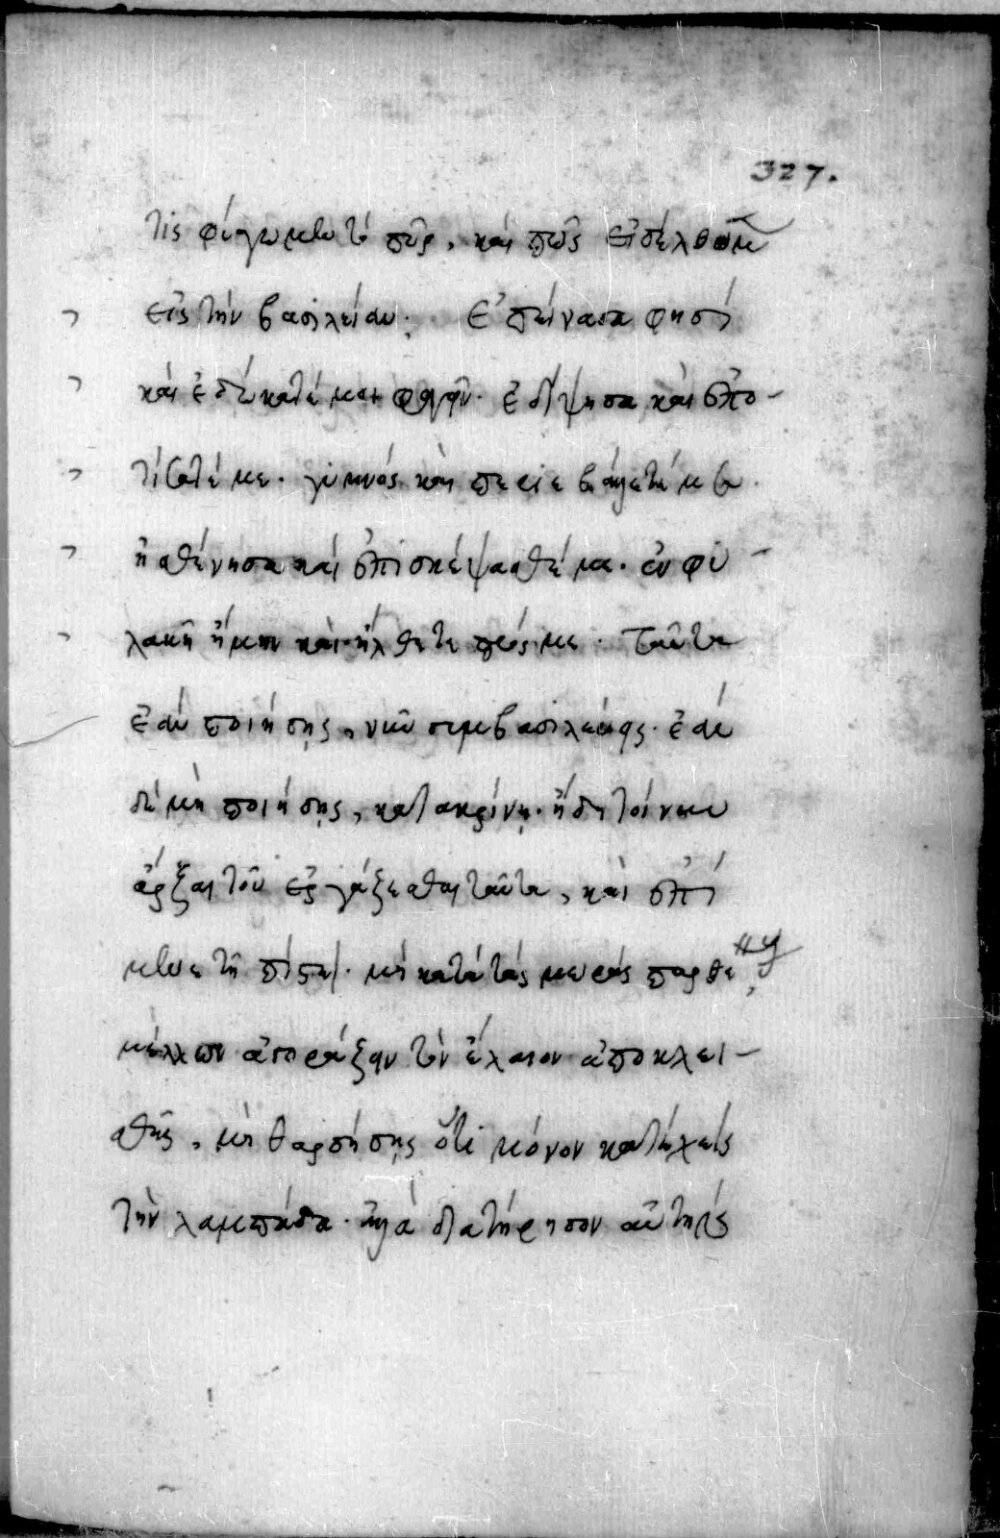 327.
τίς φύγωμεν τὸ πῦρ, καὶ πῶς εἰσέλθωμεν
εἰς τὴν βασιλείαν; Ἐπείνασα φησὶ
καὶ ἐδώκατέ μοι φαγεῖν· ἐδίψησα καὶ ἐπο-
τίσατέ με· γυμνὸς καὶ περιεβάλετέ με·
ἠσθένησα καὶ ἐπισκέψασθέ με· ἐν φυ-
λακῇ ἤμην καὶ ἤλθετε πρός με· Ταῦτα
ἐὰν ποιήσῃς, νῦν συμβασιλεύεις· ἐὰν
δὲ μὴ ποιήσῃς, κατακρίνῃ· ἤδη τοίνυν
ἄρξαι τοῦ ἐργάζεσθαι ταῦτα, καὶ ἐπί
μενε τῇ πίστει· μὴ κατὰ τὰς μωρὰς παρθέ
μέλλων ἀγοράζειν τὸν ἔλαιον ἀποκλει-
σθῇς, μὴ θαρσήσῃς ὅτι μόνον κατέχεις
τὴν λαμπάδα· ἀλλὰ διατήρησον αὐτὴν